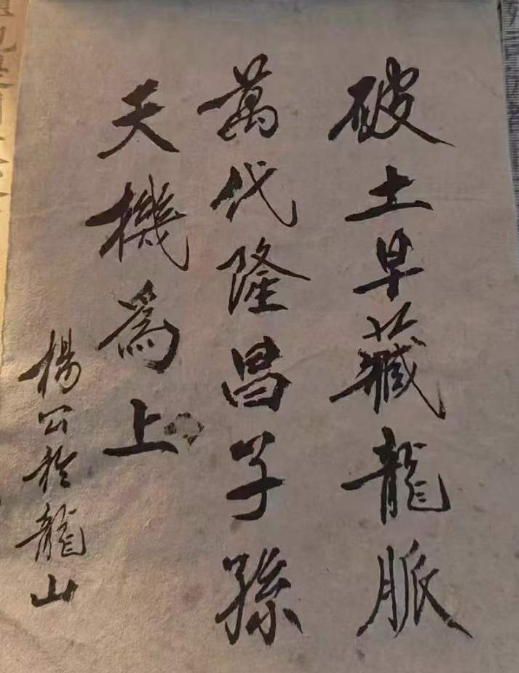 破土早藏龍脈
萬代隆昌子孫
天機為上
楊公於龍山